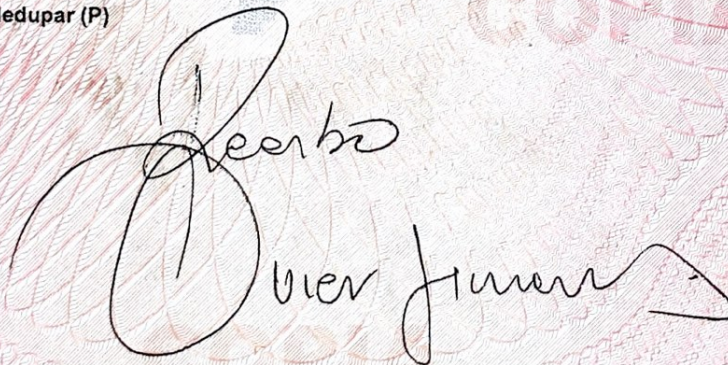 ledupar (P)
Recibo
Duver Jimenez